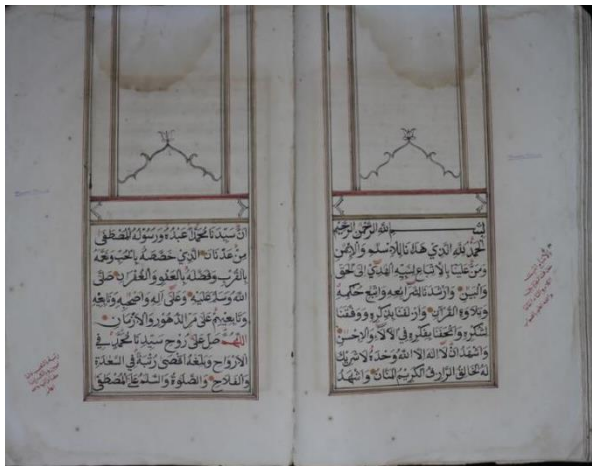 بسم الله الرحمن الرحيم
الحمد لله الذي هدانا بالاسلام والايمن
ومن علينا بالاتباع لنبيه الهادي الى الحق
والبين وارشدنا لشرائعه واتباع حكمه
وتلاوة القران وارزقنا بذكره ووفقنا
لشكره واتحفنا بفكره في الآلاء والاحسن
واشهد ان لا اله الا الله وحده لا شريك
له الخالق الرازق الكريم المنان واشهد
ان سيدنا محمدا عبده ورسوله المصطفى
من عدنان الذي خصصه بالحب ونعمه
بالقرب وفضله بالعفو والغفران صلى
الله وسلم عليه وعلى آله واصحبه وتابعه
وتابعيهم على مر الدهور والازمان
اللهم صل على روح سيدنا محمد في
الارواح وبلغه اقصى رتبة في السعادة
والفلاح والصلوة والسلم على المصطفى